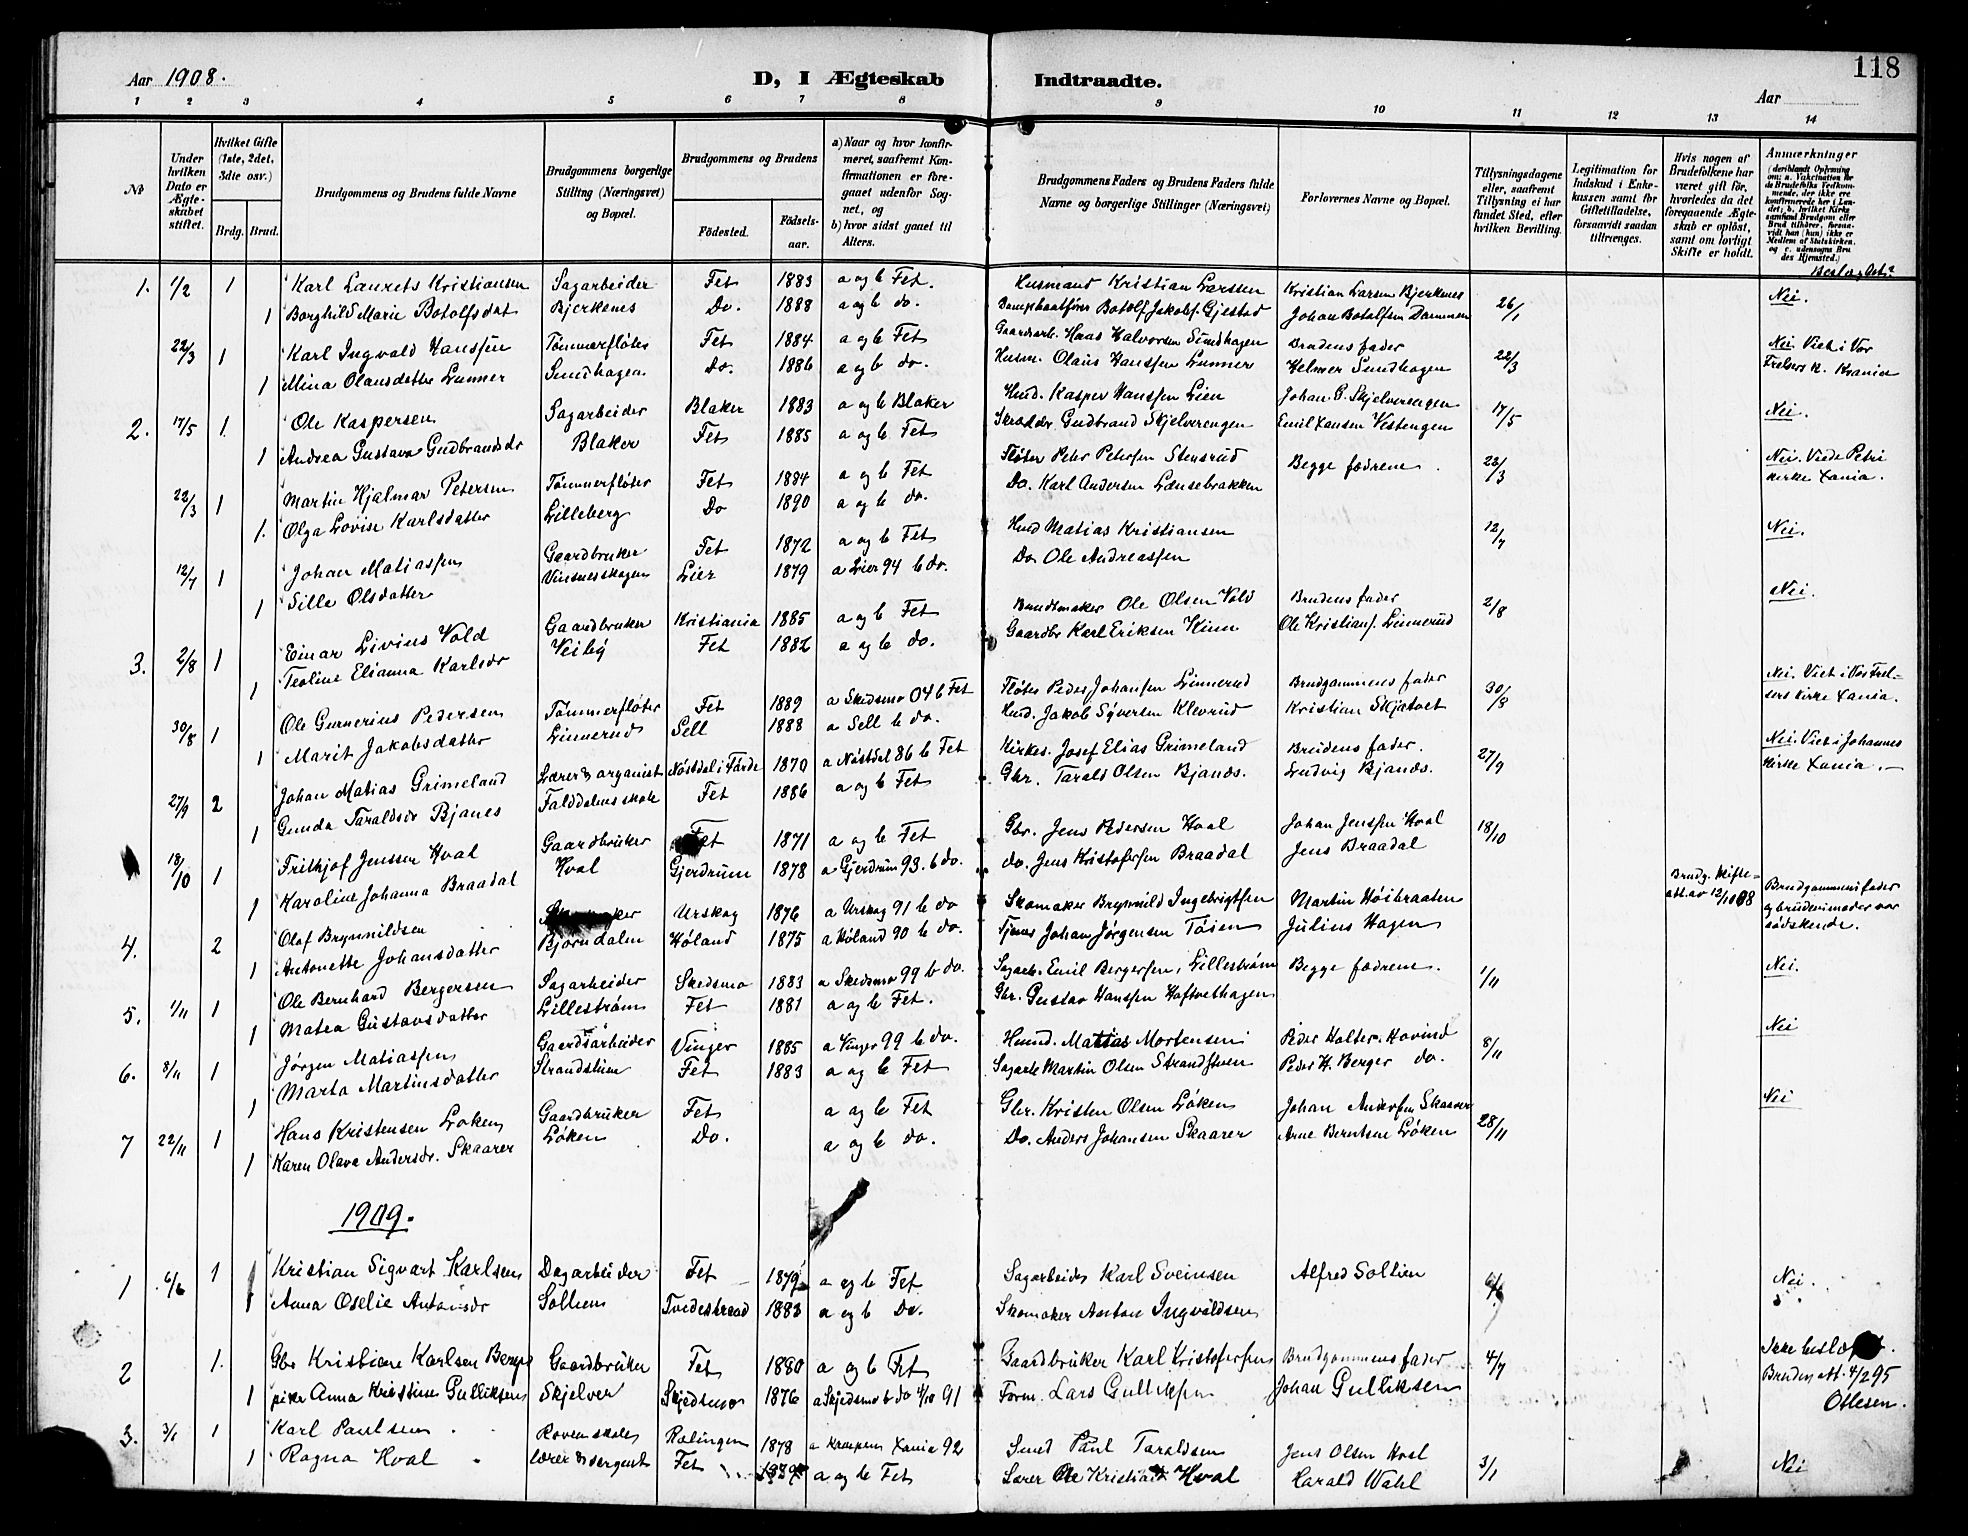 118
Aar 1908.
D, I Ægteskab Indtraadte.
Aar
1 2 3 4 5 6 7 8 9 10 11 12 13 14
No
Under hvilken Dato er Ægteskabet stiftet.
Hvilket Gifte (1ste, 2det, 3die osv.)
Brdg. Brud.
Brudgommens og Brudens fulde Navne
Brudgommens borgerlige Stilling (Næringsvei) og Bopæl.
Brudgommens og Brudens
Födested. Födselsaar.
a) Naar og hvor konfirmeret, saafremt Konfirmationen er foregaaet udenfor Sognet, og b) hvor sidst gaaet til Alters.
Brudgommens Faders og Brudens Faders fulde Navne og borgerlige Stillinger (Næringsvei)
Forlovernes Navne og Bopæl.
Tillysningsdagene eller, saafremt Tillysning ei har fundet Sted, efter hvilken Bevilling.
Legitimation for Indskud i Enkekassen samt for Giftetilladelse, forsaavidt saadan tiltrænges.
Hvis nogen af Brudefolkene har været gift för, hvorledes da det foregaaende Ægteskab er oplöst, samt om lovligt Skifte er holdt.
Anmærkninger
1. 1/2 1 Karl Laurets Kristiansen Sagarbeider Fet 1883 a og b Fet. Husmand Kristian Larssen Kristian Larsen Bjerkenes 26/1 Nei.
1 Borghild Marie Botolfsdat Bjerkenes Do. 1888 a og b do. Botolf Jakobs. Gjestad Johan Botolfsen Dammen
22/3 1 Karl Ingvald Hanssen Tømmerfløter Fet 1884 a og b Fet Gaardarb. Hans Halvorsen Sundhagen Brudens fader 22/3 Nei. Viet i Vor
1 Mina Olausdatter Lunner Sundhagen Do. 1886 a og b do. Husm. Olaus Hanssen Lunner Helmer Sundhagen Frelsers K. Krania
2. 17/5 1. Ole Kaspersen Sagarbeider Blaker 1883 a og b Blaker Husd. Kasper Hanssen Lien Johan G. Skjelverengen 17/5 Nei.
1 Andrea Gustava Gudbrandsdr Blaker Fet 1885 a og b Fet Gudbrand Skjelverengen Emil Hansen Vestengen
22/3 1 Martin Hjalmar Petersen Tømmerfløter Fet 1884 a og b Fet Fløter Peter Petersen Stensrud Begge fædrene. 22/3 Nei. Viede Petri
1. Olga Lovise Karlsdatter Lilleberg Do 1890 a og b do. Do. Karl Andersen Lænsebrakken kirke Xania.
12/7 1 Johan Matiassen Gaardbruker Fet 1872 a og b Fet Husd Matias Kristiansen 12/7 Nei.
1 Sille Olsdatter Vinsnesskogen Lier 1879 a Lier 94 b do. Do. Ole Andreassen
3. 2/8 1 Einar Livius Vold Gaardbruker Kristiania 1885 a og b Fet Ole Olsen Vold Brudens fader 2/8 Nei.
1 Teoline Elianna Karlsdr Veiby Fet 1882 a og b do. Gaardbr Karl Eriksen Hinn Ole Kristians. Linnerud
30/8 1 Ole Gunerius Pedersen Tømmerfløter Fet 1889 a Skedsmo 04 b Fet Fløter Peder Johansen Linnerud Brudgommens fader 30/8 Nei. Viet i Vor Frel-
1 Marit Jakobsdatter Linnerud Sell 1888 a Sell b do. Husd. Jakob Syversen Klevrud Kristian Skjatvet sers kirke Xania.
27/9 2 Johan Matias Grimeland Lærer & organist Nøstdal i Førde 1870 a Nøstdal 86 b Fet Kirkes. Josef Elias Grimeland Brudens fader. 27/9 Nei. Viet i Johannes
1 Gunda Taraldsdr Bjanes Falddalens skole Fet 1886 a og b Fet Gbr. Tarald Olsen Bjanæs. Ludvig Bjanæs. kirke Xania.
18/10 1 Frithjof Jenssen Hval Gaardbruker Fet 1871 a og b Fet Gbr. Jens Pedersen Hval Johan Jenssen Hval 18/10
1 Karoline Johanna Braadal Hval Gjerdrum 1878 a Gjerdrum 93. b do. do. Jens Kristofersen Braadal Jens Braadal
4. 2 Olaf Brynnildsen Urskog 1876 a Urskog 91 b do Skomaker Brynnild Ingebrigtsen Martin Høibraaten Brudg. skifte- att. av 12/10 08 Brudgommens fader
1 Antonette Johansdatter Bjørndalen Høland 1875 a Høland 90 b do. Johan Jørgensen Tøien Julius Hagen og brudens moder var sødskende.
5. 1/11 1 Ole Bernhard Bergersen Sagarbeider Skedsmo 1883 a Skedsmo 99 b do. Sagarb. Emil Bergersen, Lillestrøm Begge fædrene. 1/11 Nei.
1 Matea Gustavsdatter Lillestrøm Fet 1881 a og b Fet. Gbr. Gustav Hanssen Hoftvethagen
6. 8/11 1 Jørgen Matiassen Gaardsarbeider Vinger 1885 a Vinger 99 b do. Husmd. Mattias Mortensen Peder Holter. Hovind 8/11 Nei
1 Marta Martinsdatter Strandstuen Fet 1883 a og b Fet Sagarb Martin Olsen Strandstuen Peder H. Berger do.
7 22/11 1 Hans Kristensen Løken Gaardbruker Fet a og b Fet Gbr. Kristen Olsen Løken Johan Andersen Skaarer 28/11 Nei
1 Karen Olava Andersdr. Skaarer Løken Do. a og b do. Do. Anders Johansen Skaarer Arne Berntsen Løken
1909.
1 6/6 1 Kristian Sigvart Karlsen Dagarbeider Fet 1879 a og b Fet Sagarbeider Karl Sveinsen Alfred Sollien 6/6 Nei.
1 Anna Oselie Antonsdr Solliens Tvedestrand 1883 a og b Do. Skomaker Anton Ingvaldsen
2 1. Gbr Kristiane Karlsen Berger Gaardbruker Fet 1880 a og b Fet Gaardbruker Karl Kristofersen Brudgommens fader 4/7 Ikke beslægtet.
1 pike Anna Kristine Gulliksen Skjelver Skjedsmo 1876 a Skjedsmo b do 4/10 91 Form. Lars Gulliksen Johan Gulliksen Bruden att. 4/2 95
Ottesen.
3. 3/1 1 Karl Paulsen Rovenskole Rælingen 1878 a Xania 92 Smed Paul Taraldsen Jens Olsen Hval 3/1 Nei
1 Ragna Hval Fet a og b Fet Lærer Ole Kristian Hval Harald Wahl